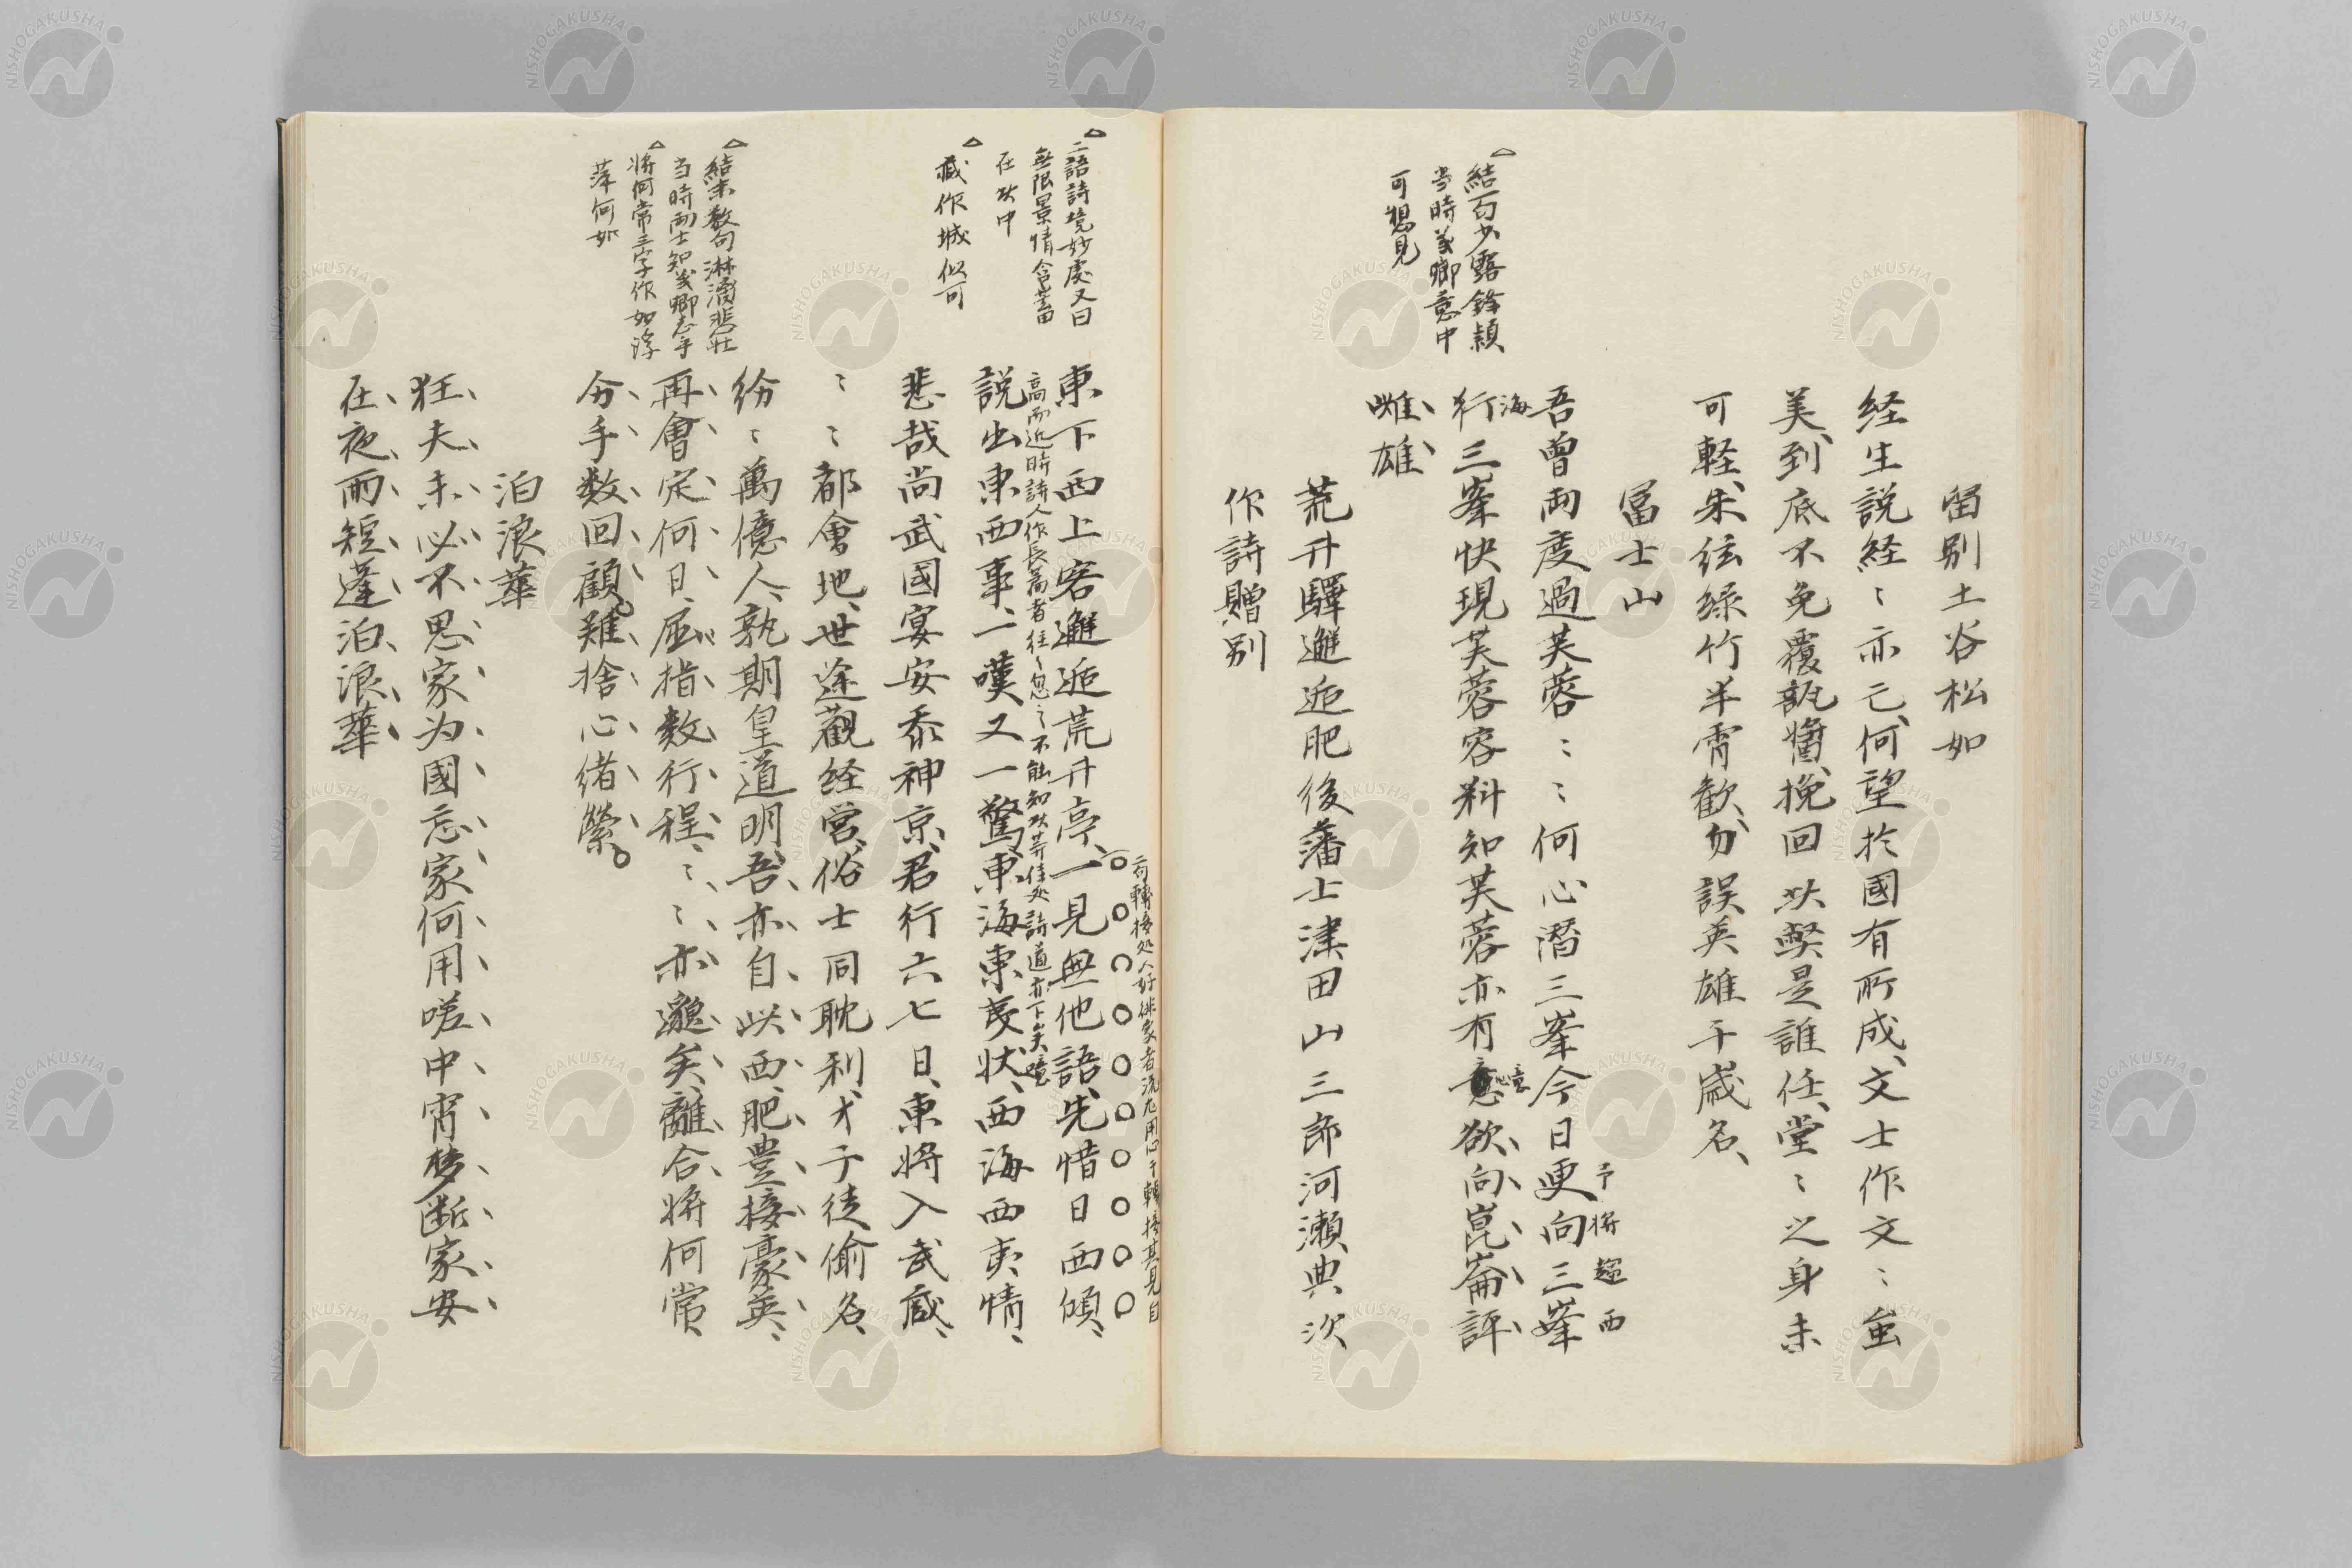 留別土谷松如
経生説経〻亦已何望於國有所成、文士作文〻虽
美、到底不免覆瓿醬、挽回此弊是誰任、堂〻之身未
可軽、朱弦緑竹半宵歓、勿誤英雄千歳名、
冨士山
吾曽両度過芙蓉〻〻何心潛三峯今日更向三峯
予將超西
行三峯快現芙蓉容料知芙蓉亦有意欲、向、崑、崙、評
海
意
雌、雄、
△結句少露鋒頴
当時義卿意中
可想見
荒井驛邂逅肥後藩士津田山三郎河瀬典次
作詩贈別
東下西上客邂逅荒井亭、一見無他語、先惜日西傾、
二句轉接処人好俳家者流尤用心于轉接其見自
高而近時詩人作長篇者往〻忽之不能知此等佳处詩道亦下矣噫
説出東西事、一嘆又一驚、東海東夷状、西海西夷情、
悲哉尚武國宴安忝神京、君行六七日、東將入武蔵、
〻〻都會地、世途觀経営、俗士同耽利、才子徒偷名、
紛〻萬億人、孰期皇道明、吾、亦、自、此、西、肥、豊、接、豪、英、
再、會、定、何、日、屈、指、数、行、程、〻、〻、亦、邈、矣、離、合、將何常、
分、手、数、回、顧、難、捨、心、緒、縈。
△二語詩境妙處又曰
無限景情含蓄
在此中
△蔵作城似可
△結末数句淋漓悲壮
当時両士知義卿志乎
△將何常三字作如浮
萍何如
泊浪華
狂、夫、未、必、不、思、家、为、國、忘、家、何、用、嗟、中、宵、梦、断、家、安、
在、夜、雨、短、蓬、泊、浪、華、